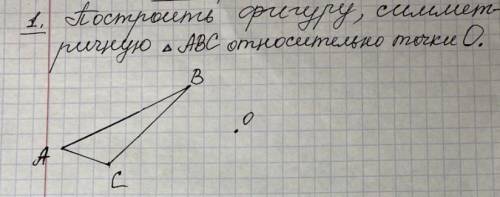 1. Построить фигуру, симмет-
ричную △ ABC относительно точки O.
B
O
A
C